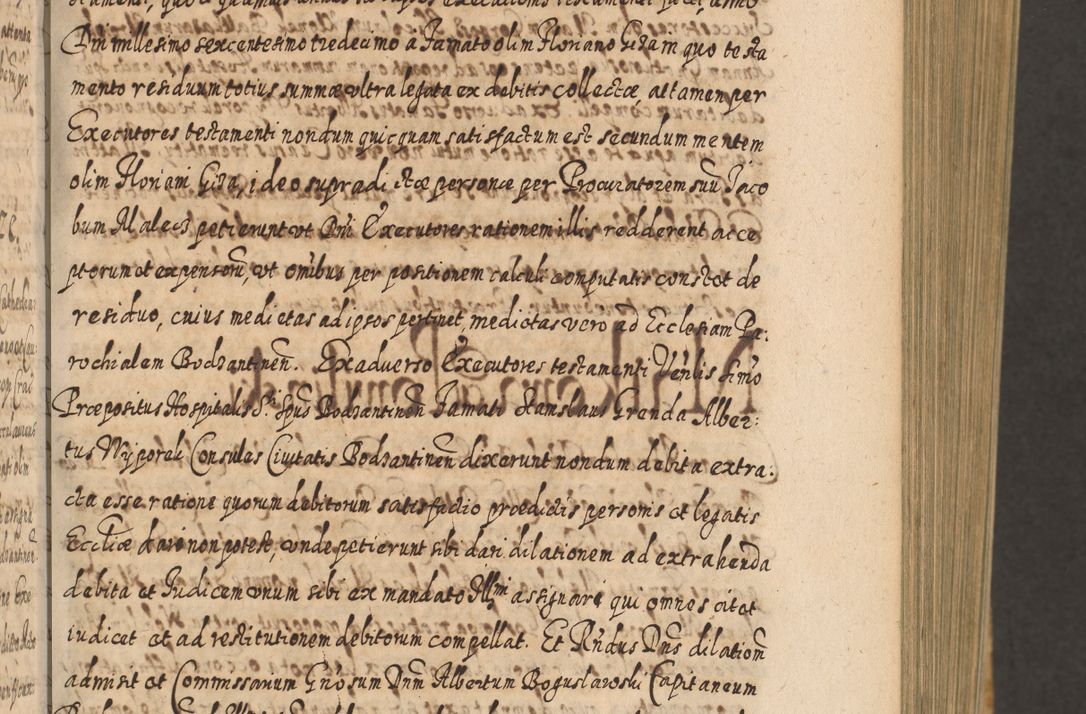 Dni millesimo sexcentesimo tredecimo a Famato olim Floriano Giza in quo testa
mento residuum totius summæ ultra legata ex debitis collectæ, attamen per
Executores testamenti nondum quicquam satisfactum est secundum mentem
olim Floriani Giza, ideo supradictæ personæ per Procuratorem suū Jaco
bum Malecz petierunt ut Dni Executores rationem illis redderent acce
ptorum et expensorū, ut omībus per positionem calculi computatis constet de
residuo, cuius medietas ad ipsos pertinet, medietas vero ad Ecclesiam Pa:
rochialem Bodzantineñ. Ex adverso Executores testamenti Venlis Simo
Præpositus Hospitalis Sti Spūs Bodzantineñ Famati Stanislaus Grenda Alber:
tus Wyporek Consules Civitatis Bodzantineñ dixerunt nondum debita extra:
cta esse ratione quorum debitorum satisfactio prædictis personis et legatis
Eccliæ dari non potest, unde petierunt sibi dari dilationem ad extrahenda
debita et Judicem unum sibi ex mandato Illmi assignari qui omnes citet
iudicet et ad restitutionem debitorum compellat. Et Rndus Dns dilationē
admisit et Commissarium Gnosum Dnm Albertum Boguslawski Capitaneum